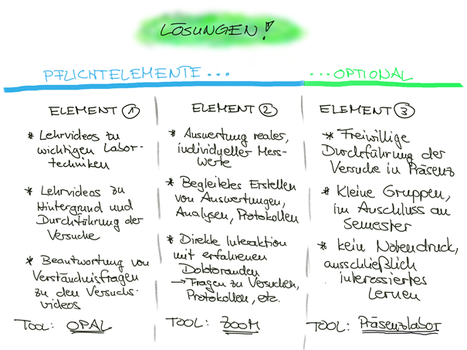 LÖSUNGEN!
PFLICHTELEMENTE ...
... OPTIONAL
ELEMENT 1
* Lehrvideos zu
wichtigen Labor-
techniken
* Lehrvideos zu
Hintergrund und
Durchführung der
Versuche
* Beantwortung von
Verständnisfragen
zu den Versuchs-
videos
TOOL: OPAL
ELEMENT 2
* Auswertung realer,
individueller Mess-
werte
* Begleitetes Erstellen
von Auswertungen,
Analysen, Protokollen
* Direkte Interaktion
mit erfahrenen
Doktoranden
→ Fragen zu Versuchen,
Protokollen, etc.
TOOL: ZOOM
ELEMENT 3
* Freiwillige
Durchführung der
Versuche in Präsenz
* Kleine Gruppen,
im Anschluss an
Semester
* kein Notendruck,
ausschließlich
interessiertes
Lernen
TOOL: Präsenzlabor